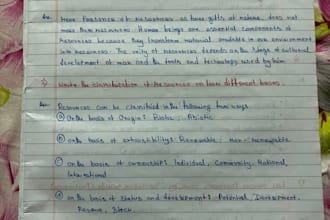 Ans. Mere Presence of Resources as free gifts of nature, does not
mean them resources. Human beings are essential components of
resources because they transform material available in our environment
into resources. The unity of resources depends on the stage of cultural
development of man and the tools and technology used by him
Write the classification of Resources on four different bases
Ans. Resources can be classified in the following four ways
(a) On the basis of Origin: Biotic, Abiotic
(b) On the basis of exhaustibility: Renewable, Non-renewable
(c) On the basis of ownership: Individual, Community, National,
International
(d) On the basis of Status and development: Potential, Development,
Reserve, Stock